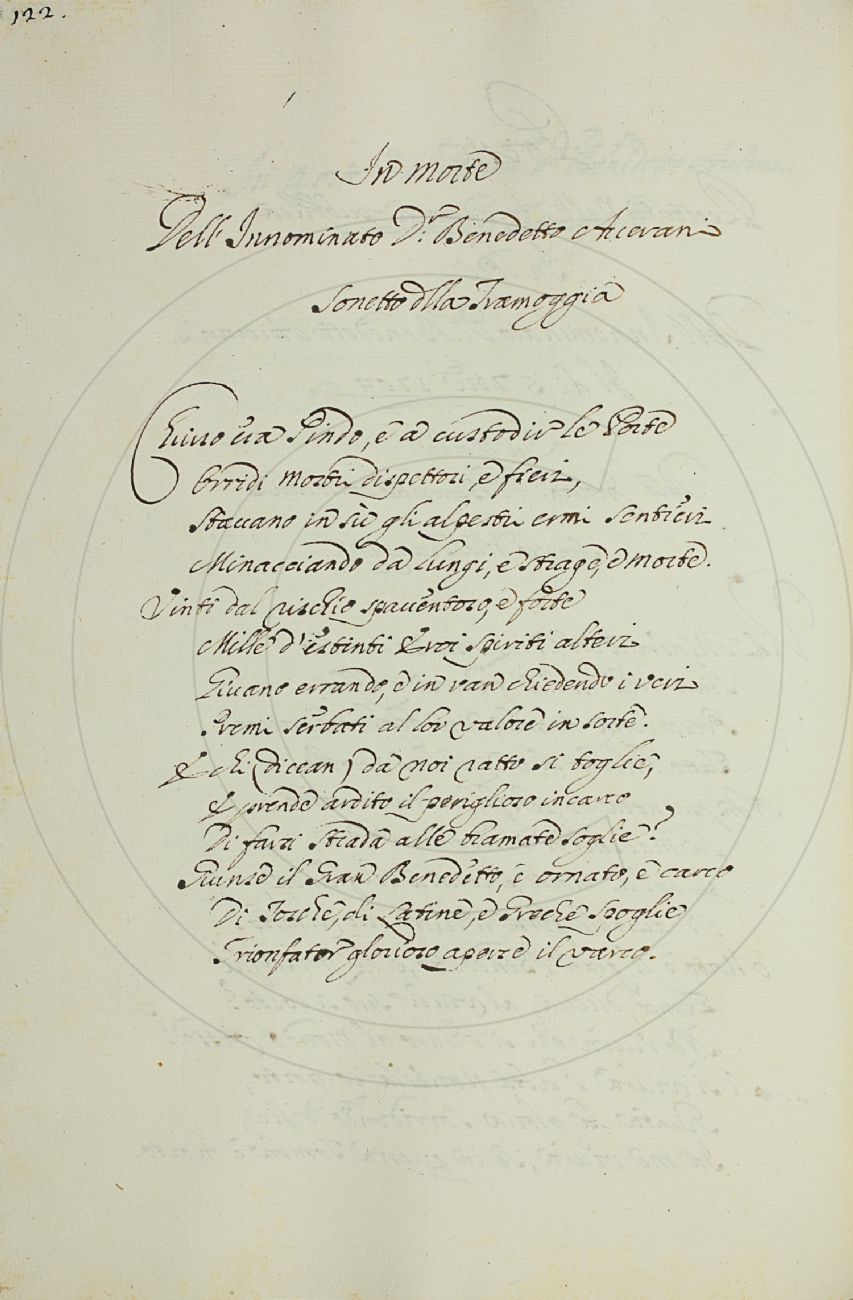 122.
In morte
Dell' Innominato D.r Benedetto Averani
Sonetto dlla Tramoggia
Chiuso era Pindo, e a custodir le Porte
Orridi mostri dispettosi, e fieri,
Staccano in sù gli alpestri ermi sentieri
Minacciando da lungi, e strage, e morte.
Vinti dal rischio spaventoso, e forte
Mille d'estinti Eroi spiriti alteri
Givano errando, e in van chiedendo i veri
Premi serbati al lor valore in sorte.
E chi (diccan) da noi ratto si toglie,
E prende ardito il periglioso incarco
Di farsi strada alle bramate soglie?
Giunse il Gran Benedetto, e ornato, e carco
Di Tosche, di Latine, e Greche spoglie
Trionfator glorioso aperse il varco.